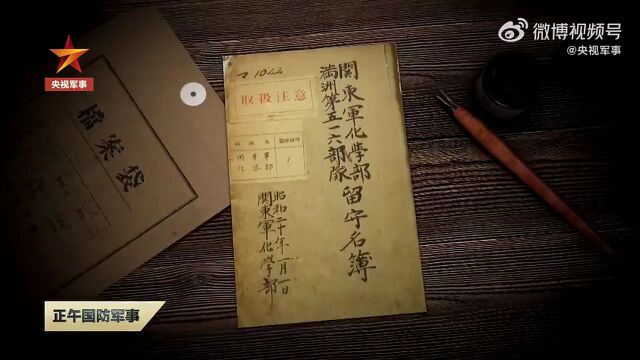 央视军事
微博视频号
@央视军事
檔案袋
1042
取扱注意
關東軍
化學部
1
關東軍化學部
満洲第五一六部隊
留守名簿
昭和二十年一月一日
關東軍化學部
正午国防军事